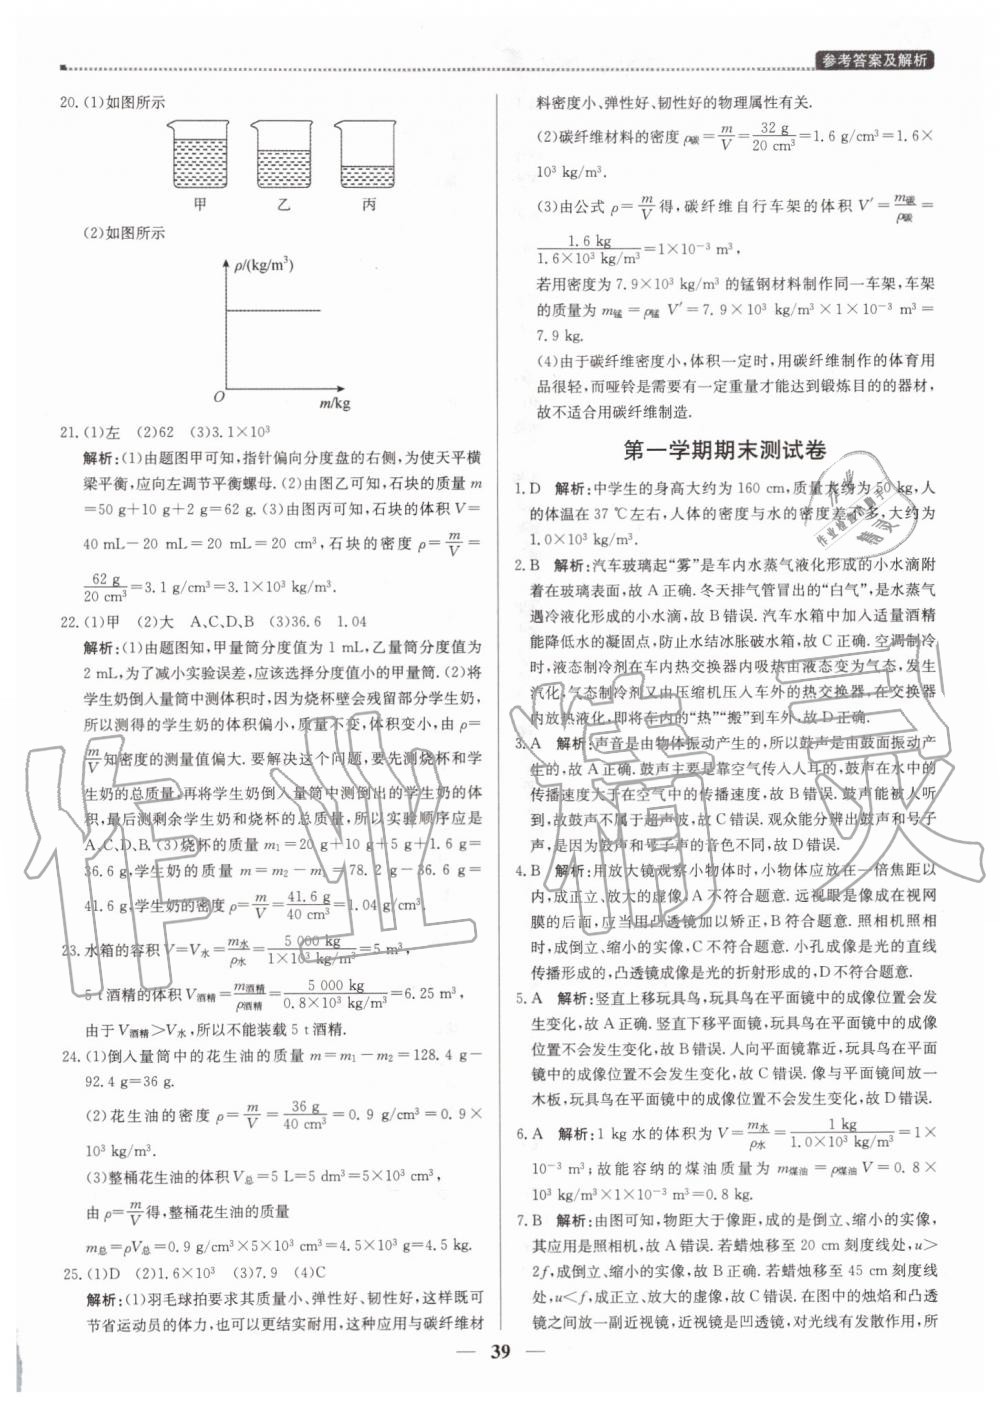 参考答案及解析
20.(1)如图所示
甲 乙 丙
(2)如图所示
ρ/(kg/m³)
O
m/kg
21.(1)左 (2)62 (3)3.1×10³
解析:(1)由题图甲可知,指针偏向分度盘的右侧,为使天平横
梁平衡,应向左调节平衡螺母.(2)由图乙可知,石块的质量m
=50 g+10 g+2 g=62 g.(3)由图丙可知,石块的体积V=
40 mL-20 mL=20 mL=20 cm³,石块的密度ρ=m/V=
62 g/20 cm³=3.1 g/cm³=3.1×10³ kg/m³.
22.(1)甲 (2)大 A、C、D、B (3)36.6 1.04
解析:(1)由题图知,甲量筒分度值为1 mL,乙量筒分度值为
2 mL,为了减小实验误差,应该选择分度值小的甲量筒.(2)将
学生奶倒入量筒中测体积时,因为烧杯壁会残留部分学生奶,
所以测得的学生奶的体积偏小,质量不变,体积变小,由ρ=
m/V知密度的测量值偏大.要解决这个问题,要先测烧杯和学
生奶的总质量,再将学生奶倒入量筒中测倒出的学生奶的体
积,最后测剩余学生奶和烧杯的总质量,所以实验顺序应是
A、C、D、B.(3)烧杯的质量m₁=20 g+10 g+5 g+1.6 g=
36.6 g,学生奶的质量m=m₂-m₁=78.2 g-36.6 g=
41.6 g,学生奶的密度ρ=m/V=41.6 g/40 cm³=1.04 g/cm³.
23.水箱的容积V=V水=m水/ρ水=5 000 kg/1×10³ kg/m³=5 m³,
5 t酒精的体积V酒精=m酒精/ρ酒精=5 000 kg/0.8×10³ kg/m³=6.25 m³,
由于V酒精>V水,所以不能装载5 t酒精.
24.(1)倒入量筒中的花生油的质量m=m₁-m₂=128.4 g-
92.4 g=36 g.
(2)花生油的密度ρ=m/V=36 g/40 cm³=0.9 g/cm³=0.9×
10³ kg/m³.
(3)整桶花生油的体积V总=5 L=5 dm³=5×10⁻³ m³,
由ρ=m/V得,整桶花生油的质量
m总=ρV总=0.9 g/cm³×5×10³ cm³=4.5×10³ g=4.5 kg.
25.(1)D (2)1.6×10³ (3)7.9 (4)C
解析:(1)羽毛球拍要求其质量小、弹性好、韧性好,这样既可
节省运动员的体力,也可以更结实耐用,这种应用与碳纤维材
料密度小、弹性好、韧性好的物理属性有关.
(2)碳纤维材料的密度ρ碳=m/V=32 g/20 cm³=1.6 g/cm³=1.6×
10³ kg/m³.
(3)由公式ρ=m/V得,碳纤维自行车架的体积V′=m碳/ρ碳=
1.6 kg/1.6×10³ kg/m³=1×10⁻³ m³,
若用密度为7.9×10³ kg/m³的锰钢材料制作同一车架,车架
的质量为m锰=ρ锰V′=7.9×10³ kg/m³×1×10⁻³ m³=
7.9 kg.
(4)由于碳纤维密度小,体积一定时,用碳纤维制作的体育用
品很轻,而哑铃是需要有一定重量才能达到锻炼目的的器材,
故不适合用碳纤维制造.
第一学期期末测试卷
1.D 解析:中学生的身高大约为160 cm,质量大约为50 kg,人
的体温在37 ℃左右,人体的密度与水的密度差不多,大约为
1.0×10³ kg/m³.
2.B 解析:汽车玻璃起“雾”是车内水蒸气液化形成的小水滴附
着在玻璃表面,故A正确.冬天排气管冒出的“白气”,是水蒸气
遇冷液化形成的小水滴,故B错误.汽车水箱中加入适量酒精
能降低水的凝固点,防止水结冰胀破水箱,故C正确.空调制冷
时,液态制冷剂在车内热交换器内吸热由液态变为气态,发生
汽化,气态制冷剂又由压缩机压入车外的热交换器,在交换器
内放热液化,即将车内的“热”“搬”到车外,故D正确.
3.A 解析:声音是由物体振动产生的,所以鼓声是由鼓面振动产
生的,故A正确.鼓声主要是靠空气传入人耳的,鼓声在水中的
传播速度大于在空气中的传播速度,故B错误.鼓声能被人听
到,故鼓声不属于超声波,故C错误.观众能分辨出鼓声和号子
声,是因为鼓声和号子声的音色不同,故D错误.
4.B 解析:用放大镜观察小物体时,小物体应放在一倍焦距以
内,成正立、放大的虚像,A不符合题意.远视眼是像成在视网
膜的后面,应当用凸透镜加以矫正,B符合题意.照相机照相
时,成倒立、缩小的实像,C不符合题意.小孔成像是光的直线
传播形成的,凸透镜成像是光的折射形成的,D不符合题意.
5.A 解析:竖直上移玩具鸟,玩具鸟在平面镜中的成像位置会发
生变化,故A正确.竖直下移平面镜,玩具鸟在平面镜中的成像
位置不会发生变化,故B错误.人向平面镜靠近,玩具鸟在平面
镜中的成像位置不会发生变化,故C错误.像与平面镜间放一
木板,玩具鸟在平面镜中的成像位置不会发生变化,故D错误.
6.A 解析:1 kg水的体积为V=m水/ρ水=1 kg/1.0×10³ kg/m³=1×
10⁻³ m³;故能容纳的煤油质量为m煤油=ρ煤油V=0.8×
10³ kg/m³×1×10⁻³ m³=0.8 kg.
7.B 解析:由图可知,物距大于像距,成的是倒立、缩小的实像,
其应用是照相机,故A错误.若蜡烛移至20 cm刻度线处,u>
2f,成倒立、缩小的实像,故B正确.若蜡烛移至45 cm刻度线
处,u<f,成正立、放大的虚像,故C错误.在图中的烛焰和凸透
镜之间放一副近视镜,近视镜是凹透镜,对光线有发散作用,所
39
作业精灵